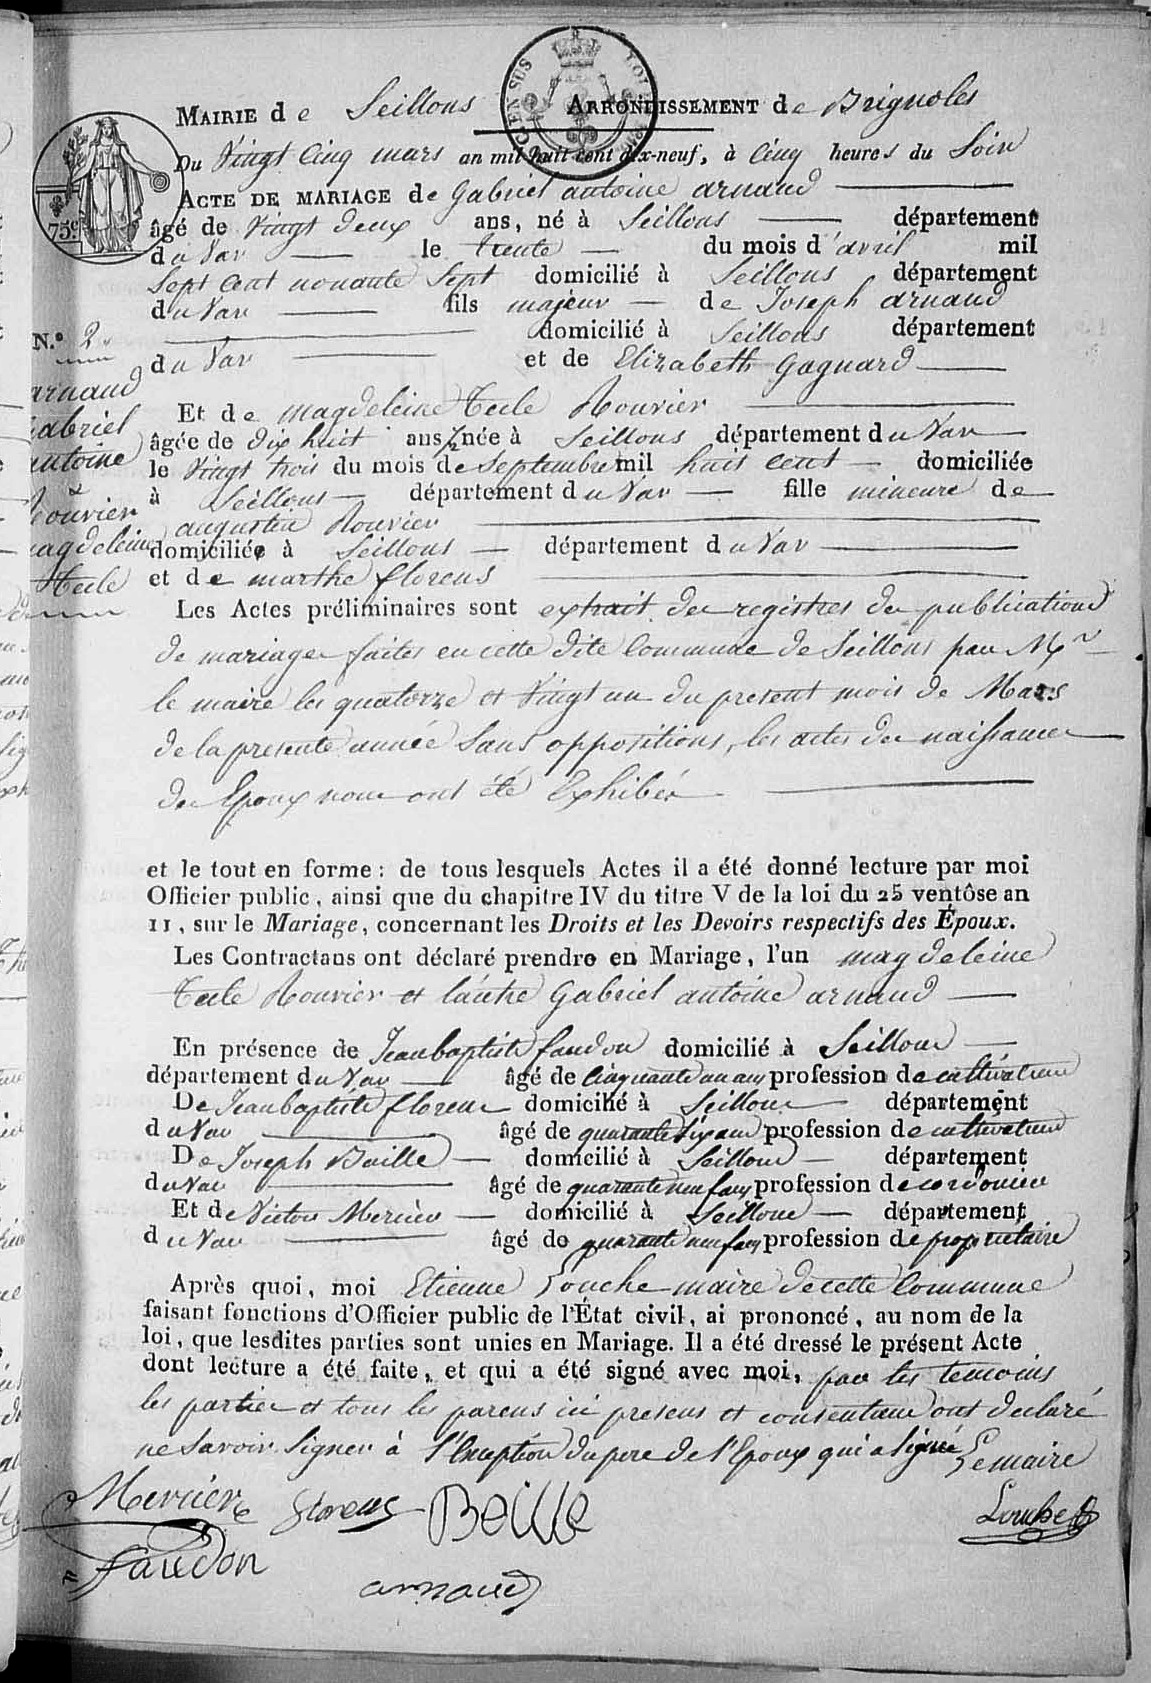 MAIRIE de Seillons ARRONDISSEMENT de Brignoles
Du Vingt Cinq mars an mil huit cent dix-neuf, à Cinq heures du Soir
ACTE DE MARIAGE de Gabriel antoine arnaud
75c
âgé de Vingt deux ans, né à Seillons département
du Var le trente du mois d'avril mil
Sept Cent nonante Sept domicilié à Seillons département
du Var fils majeur de Joseph arnaud
N.º 2. domicilié à Seillons département
du Var et de Elizabeth Gagnard
arnaud
Gabriel
antoine
&
Rouvier
magdeleine
Tecle
Et de magdeleine Tecle Rouvier
âgée de dix huit ans ½ née à Seillons département du Var
le Vingt trois du mois de Septembre mil huit cent domiciliée
à Seillons département du Var fille mineure de
augustin Rouvier
domiciliée à Seillons département du Var
et de marthe florens
Les Actes préliminaires sont extrait des registres de publications
de mariages faites en cette dite Commune de Seillons par Mr
le maire les quatorze et Vingt un du present mois de Mars
de la presente année Sans oppositions, les actes de naissances
des Epoux nous ont été Exhibés
et le tout en forme : de tous lesquels Actes il a été donné lecture par moi
Officier public, ainsi que du chapitre IV du titre V de la loi du 25 ventôse an
11, sur le Mariage, concernant les Droits et les Devoirs respectifs des Époux.
Les Contractans ont déclaré prendre en Mariage, l'un magdeleine
Tecle Rouvier et l'autre Gabriel antoine arnaud
En présence de Jean baptiste faudon domicilié à Seillons
département du Var âgé de Cinquante un ans profession de cultivateur
De Jean baptiste florens domicilié à Seillons département
du Var âgé de quarante Six ans profession de cultivateur
De Joseph Baille domicilié à Seillons département
du Var âgé de quarante neuf ans profession de cordonier
Et de Victor Mercier domicilié à Seillons département
du Var âgé de quarante neuf ans profession de propriétaire
Après quoi, moi Etienne Louche maire de cette Commune
faisant fonctions d'Officier public de l'État civil, ai prononcé, au nom de la
loi, que lesdites parties sont unies en Mariage. Il a été dressé le présent Acte
dont lecture a été faite, et qui a été signé avec moi, par les temoins
les parties et tous les parens ici presens et consentans ont declaré
ne Savoir Signer à l'Exception du pere de l'Epoux qui a Signé Le maire
Mercier florens Beille
faudon
arnaud